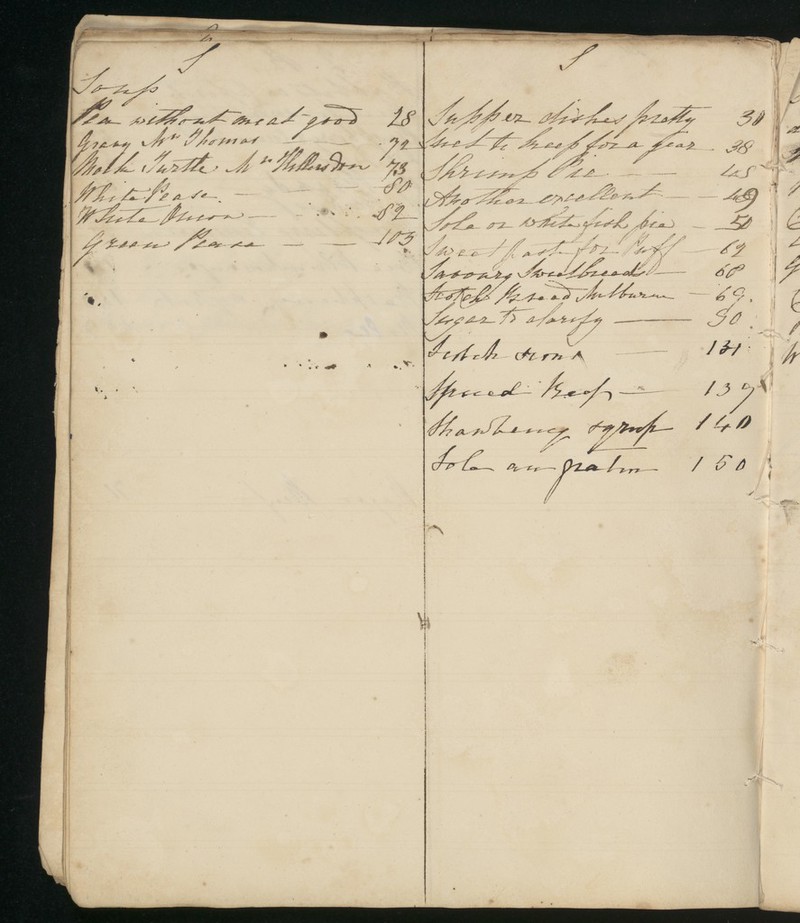 S
Soups
Pea without meat good 28
Gravy Mrs Thomas 72
Mock Turtle Mrs 73
White Pease 80
White Onion 82
Green Pease 103
S
Supper dishes pretty 30
Suet to keep for a year 38
Shrimp Pie 48
Another excellent
Sole or white fish pie 50
Sweet paste for Puff 62
Savoury Sweetbreads 68
Scotch Bread Milburn 69
Sugar to clarify 90
Scotch 131
Spiced Beef 137
Strawberry syrup 140
Sole au gratin 150